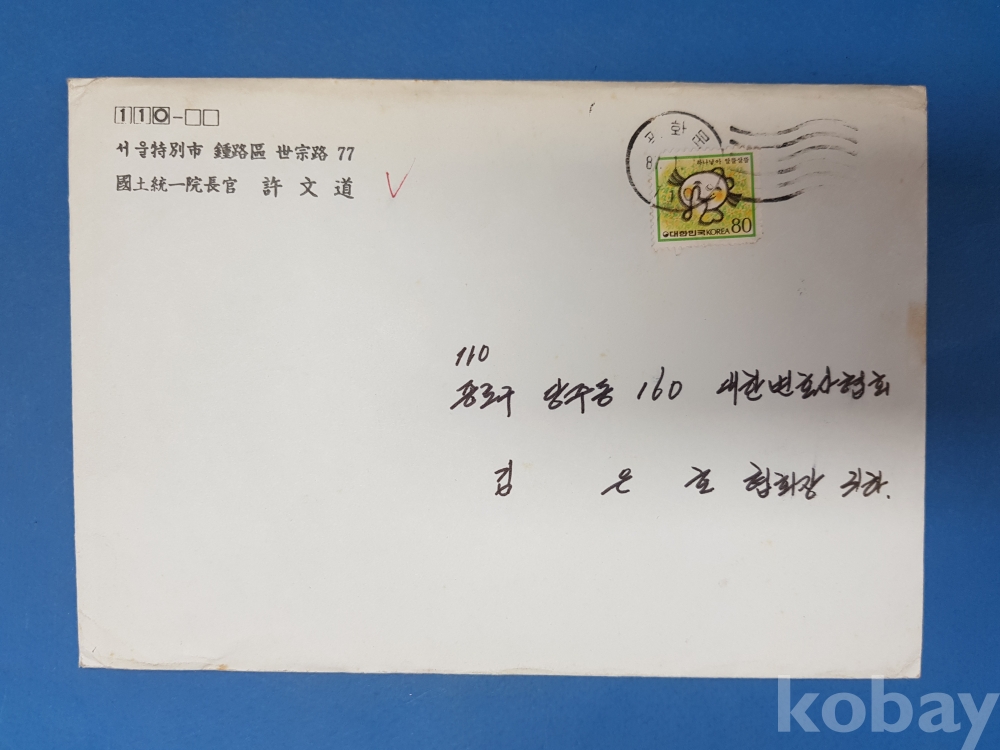 110-
서울特別市 鍾路區 世宗路 77
國土統一院長官 許文道
광화문
하나낳아 알뜰살뜰
대한민국 KOREA 80
110
종로구 당주동 160 대한변호사협회
김 은 호 협회장 귀하.
kobay